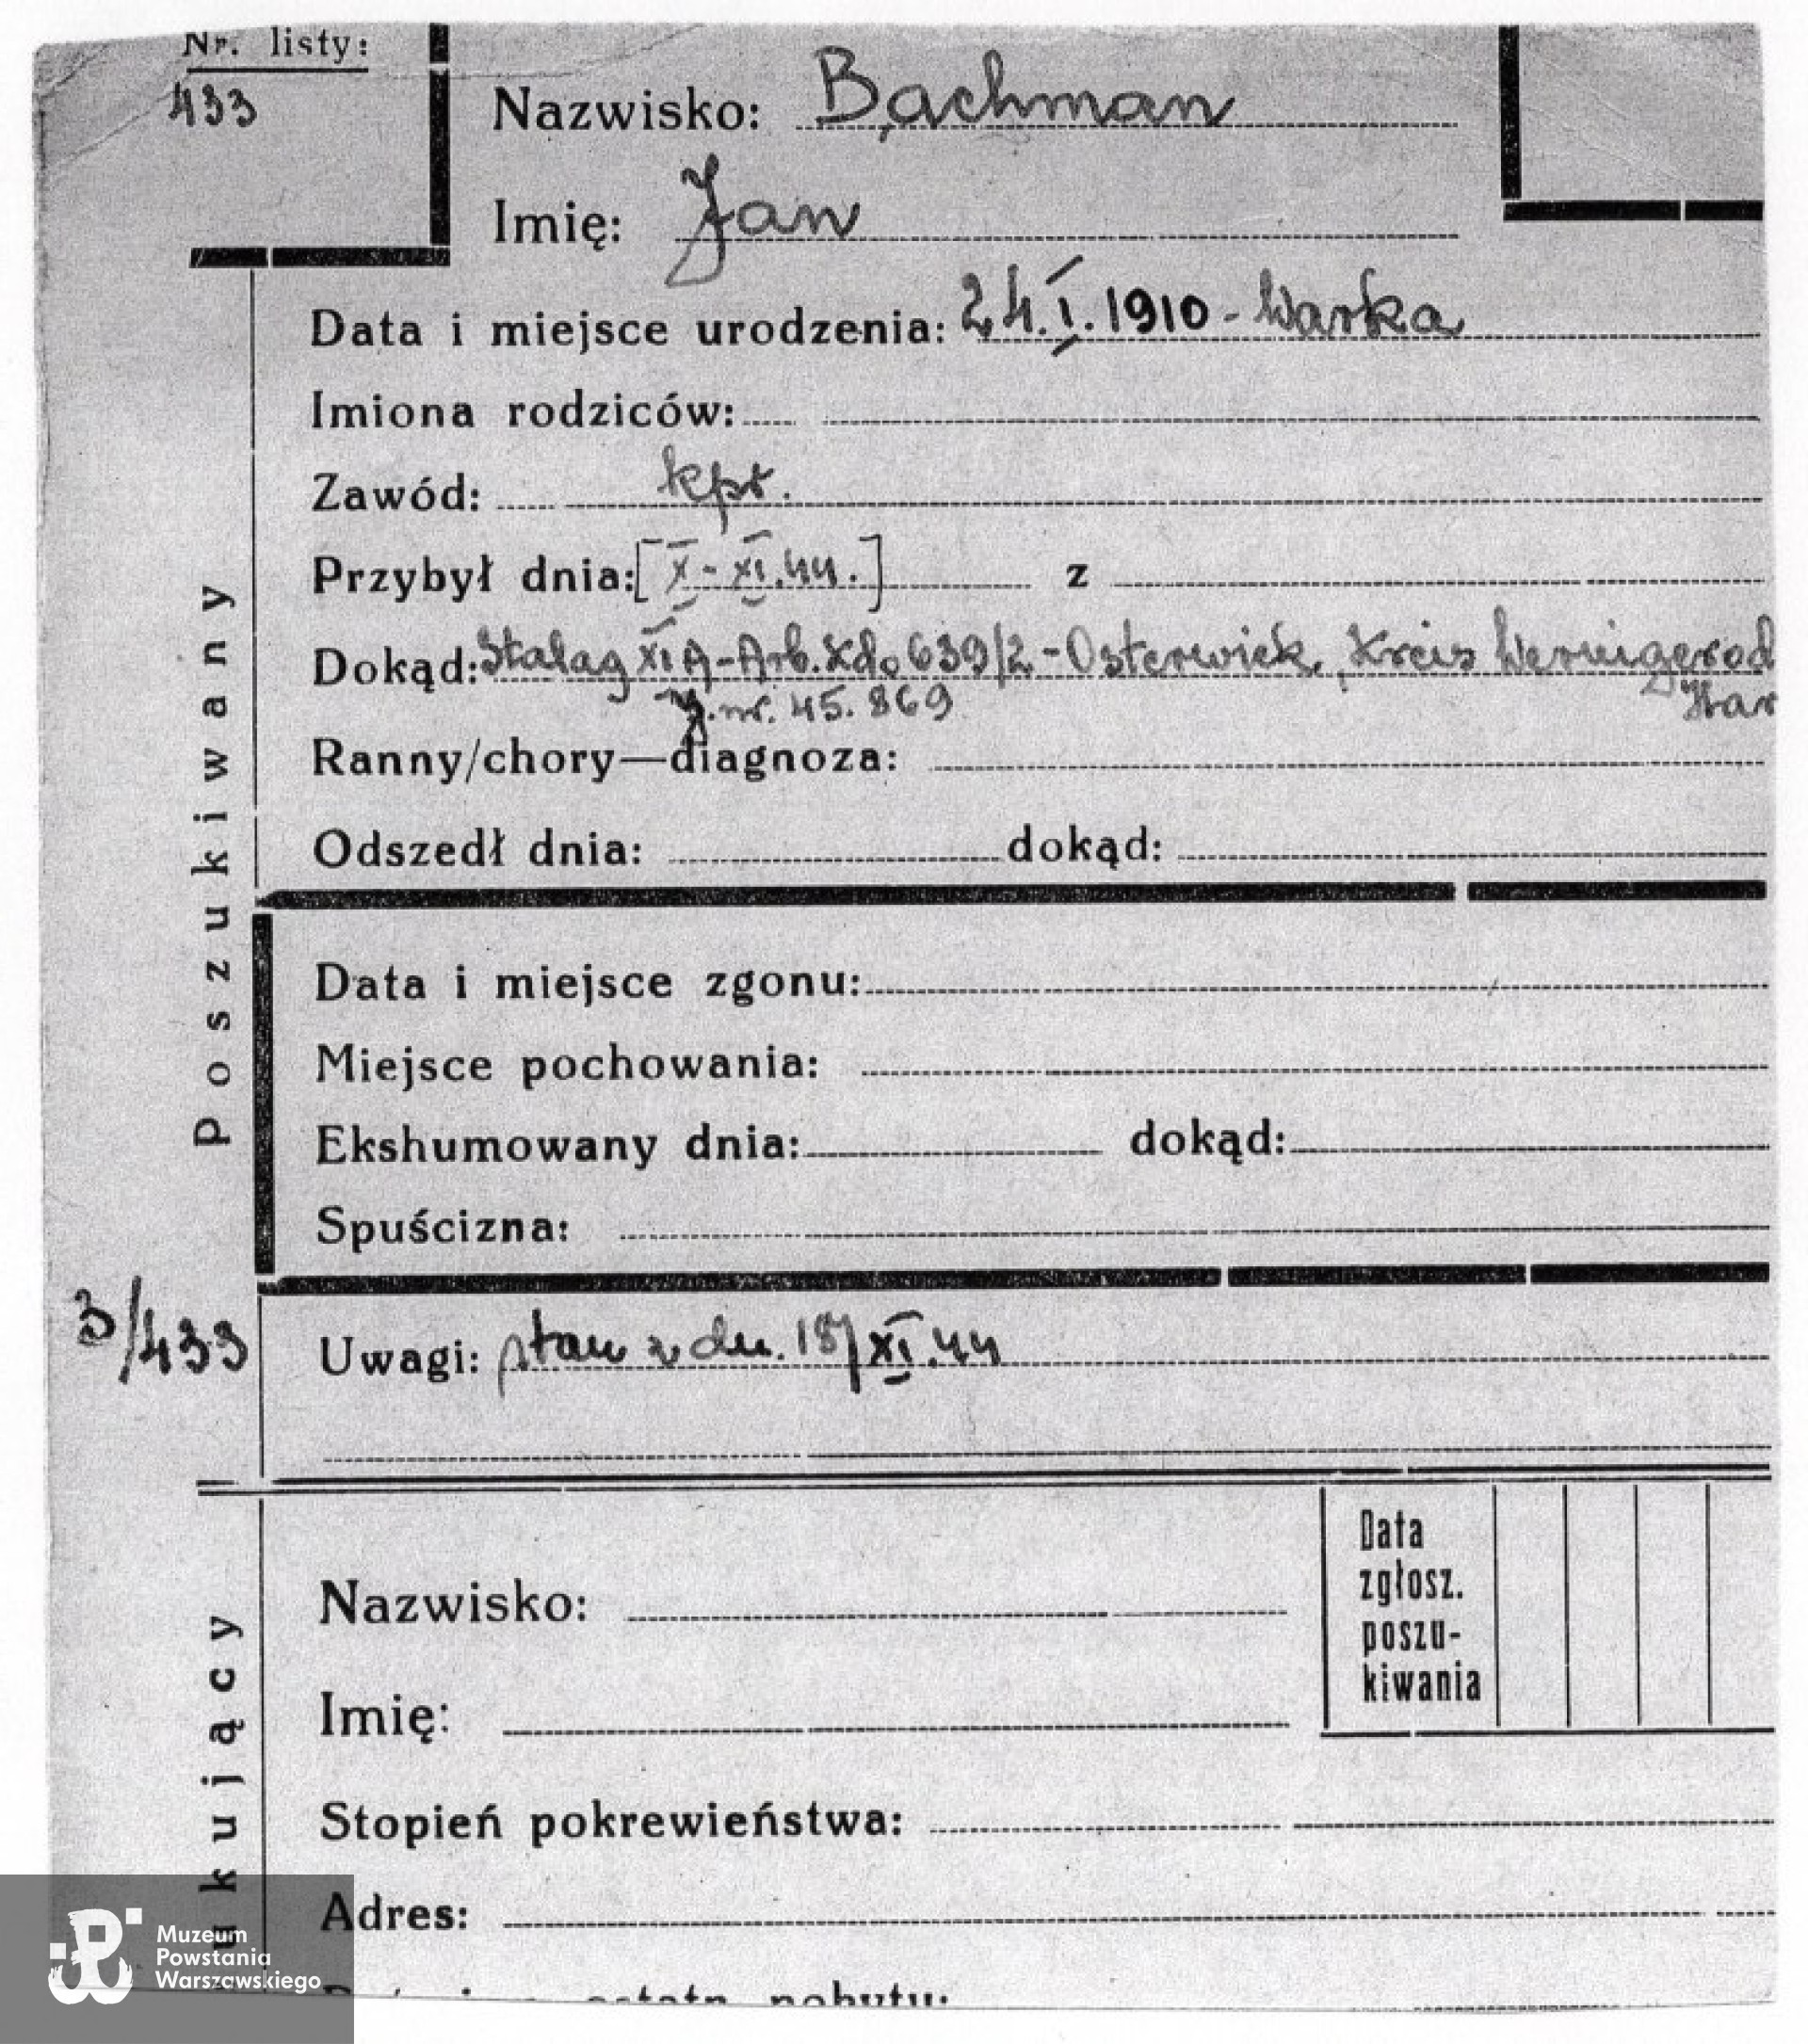 Nr. listy:
433
Nazwisko: Bachman
Imię: Jan
Data i miejsce urodzenia: 24.I.1910 - Warka
Imiona rodziców:
Zawód: kpr.
Przybył dnia: [X-XI.44.] z
Dokąd: Stalag XI A-Arb.Kdo 639/2-Osterwiek, Kreis Wernigerod
Har
J.nr. 45.869
Ranny/chory—diagnoza:
Odszedł dnia: dokąd:
Poszukiwany
Data i miejsce zgonu:
Miejsce pochowania:
Ekshumowany dnia: dokąd:
Spuścizna:
3/433
Uwagi: stan z dn. 18/XI.44
Nazwisko:
Data
zgłosz.
poszu-
kiwania
Imię:
Stopień pokrewieństwa:
Adres:
ukujący
pobytu:
Muzeum
Powstania
Warszawskiego